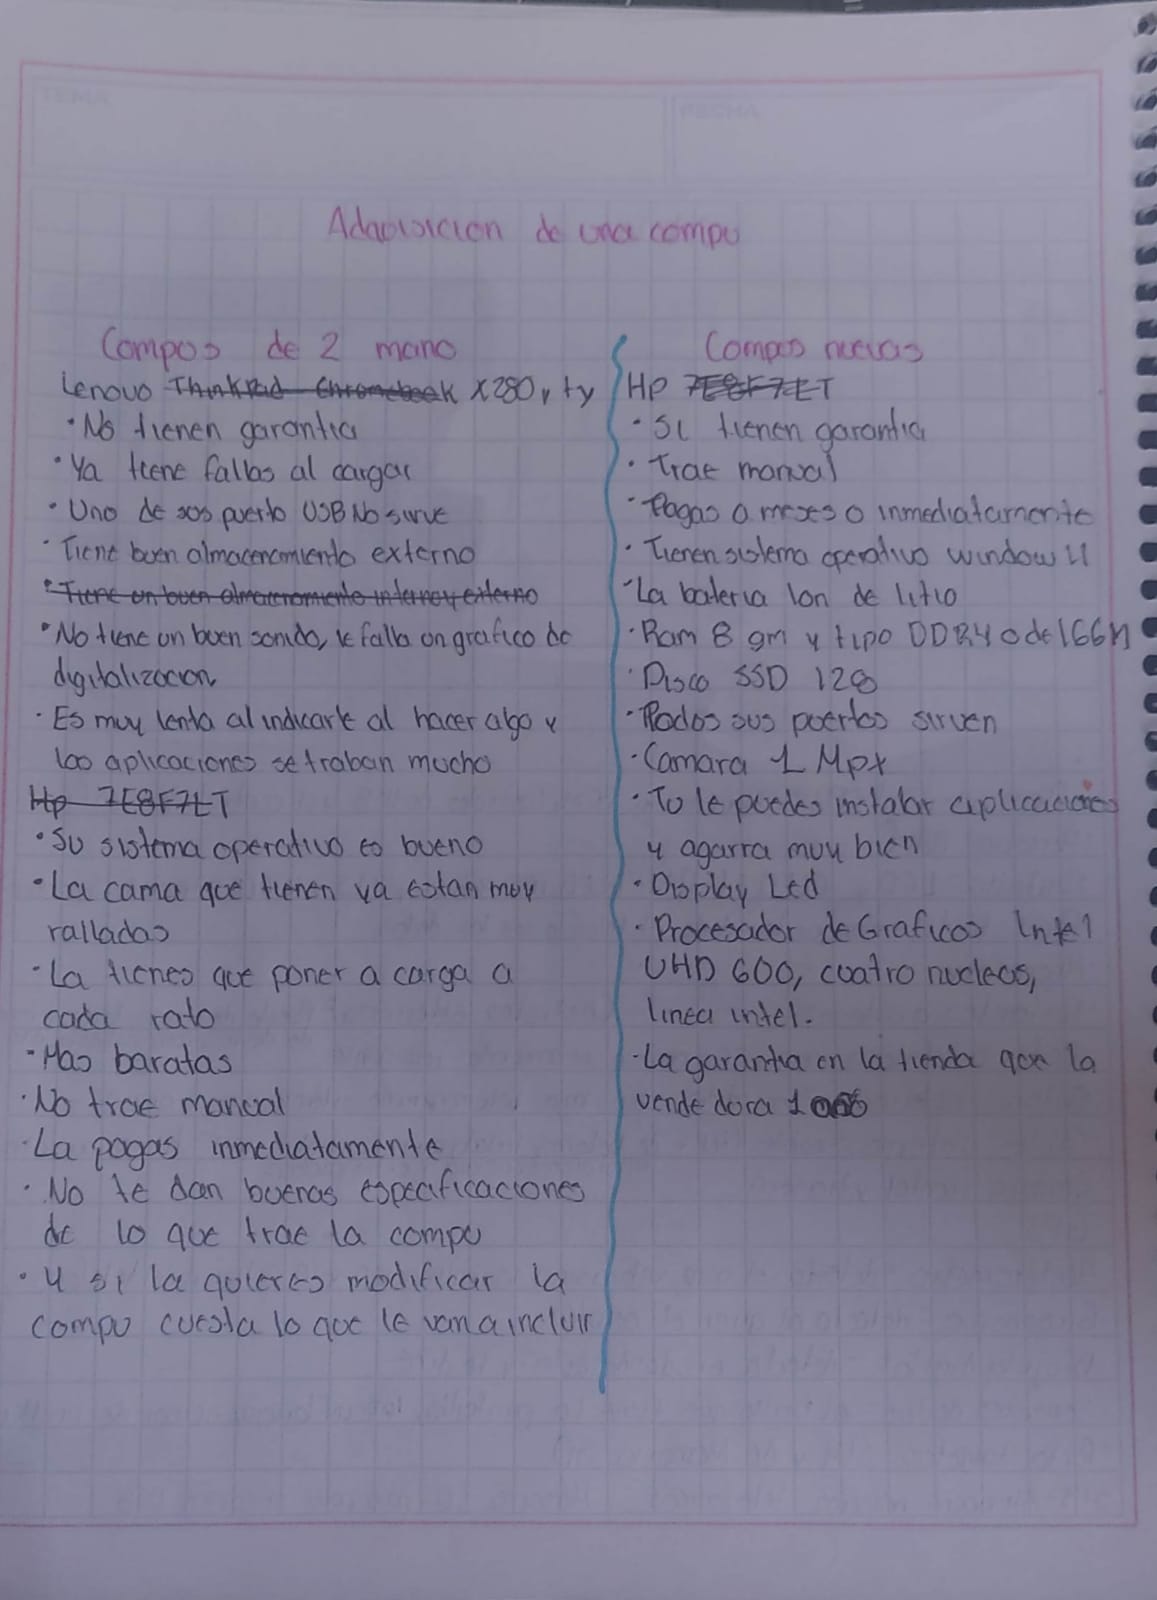 TEMA
FECHA
Adaquisicion de una compu
Compus de 2 mano
Lenovo ThinkPad Chromebook X280, ty
• No tienen garantia
• Ya tiene fallas al cargar
• Uno de sus puerto USB No sirve
• Tiene buen almacenamiento externo
• Tiene un buen almacenamiento interno y externo
• No tiene un buen sonido, le falla un grafico de
digitalizacion
• Es muy lenta al indicarle al hacer algo y
las aplicaciones se traban mucho
Hp 7E8F7LT
• Su sistema operativo es bueno
• La cama que tienen ya estan muy
ralladas
• La tienes que poner a carga a
cada rato
• Mas baratas
• No trae manual
• La pagas inmediatamente
• No te dan buenas especificaciones
de lo que trae la compu
• Y si la quieres modificar la
compu cuesta lo que le van a incluir
Compus nuevas
Hp 7E8F7LT
• Si tienen garantia
• Trae manual
• Pagas a meses o inmediatamente
• Tienen sistema operativo window 11
• La bateria Ion de litio
• Ram 8 gm y tipo DDR4 o de
• Disco SSD 128
• Todos sus puertos sirven
• Camara 1 Mpx
• Tu le puedes instalar aplicaciones
y agarra muy bien
• Display Led
• Procesador de Graficos Intel
UHD 600, cuatro nucleos,
linea intel.
• La garantia en la tienda que la
vende dura 1